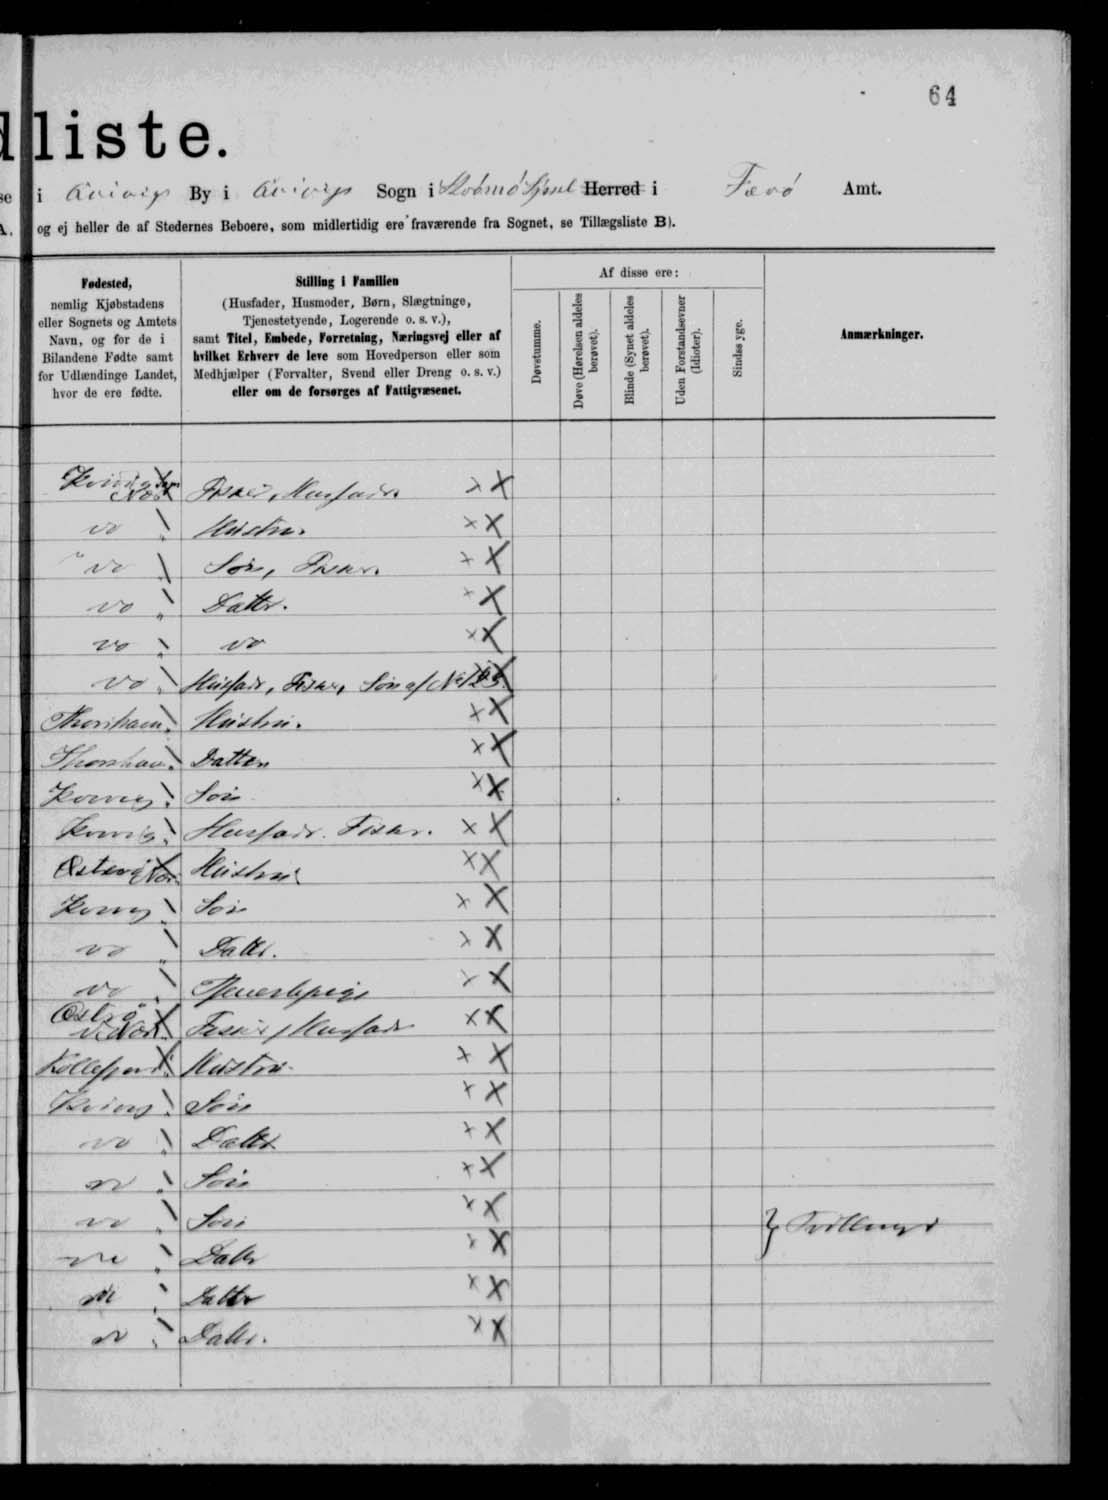 64
dliste.
i Kvivig By i Kvivig Sogn i Strömö Syssel Herred i Færö Amt.
og ej heller de af Stedernes Beboere, som midlertidig ere fraværende fra Sognet, se Tillægsliste B).
Fødested,
nemlig Kjøbstadens
eller Sognets og Amtets
Navn, og for de i
Bilandene Fødte samt
for Udlændinge Landet,
hvor de ere fødte.
Stilling i Familien
(Husfader, Husmoder, Børn, Slægtninge,
Tjenestetyende, Logerende o. s. v.),
samt Titel, Embede, Forretning, Næringsvej eller af
hvilket Erhverv de leve som Hovedperson eller som
Medhjælper (Forvalter, Svend eller Dreng o. s. v.)
eller om de forsørges af Fattigvæsenet.
Af disse ere:
Døvstumme.
Døve (Hørelsen aldeles
berøvet).
Blinde (Synet aldeles
berøvet).
Uden Forstandsevner
(Idioter).
Sindssyge.
Anmærkninger.
Kvivig Fisker, Husfader × X
do Hustru. × X
do Søn, Fisker. × X
do Datter. × X
do do × X
do Husfader, Fisker, Søn af No
Thorshavn Hustru. × X
Thorshavn Datter × X
Kvivig Søn × X
Kvivig Husfader. Fisker. × X
Østerø Hustru × X
Kvivig Søn × X
do Datter. × X
do Tjenestepige × X
Østrø Fisker, Husfader × X
Kollefjord Hustru × X
Kvivig Søn × X
do Datter × X
do Søn × X
do Søn × X } Tvillinger
do Datter × X
do Datter × X
do Datter. × X